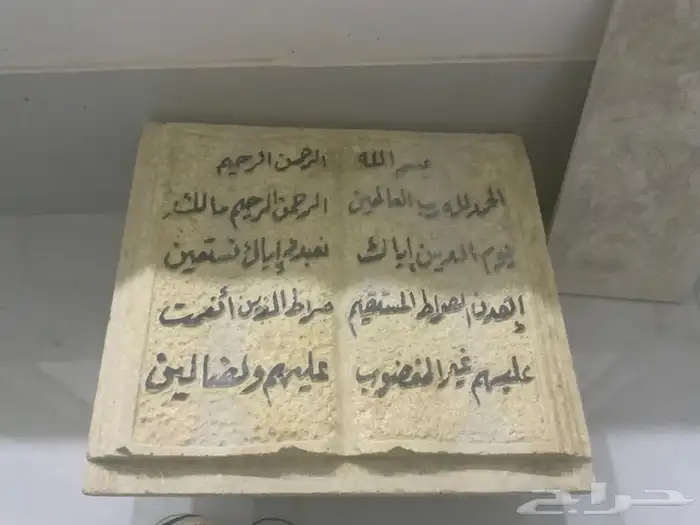 بسم الله الرحمن الرحيم
الحمد لله رب العالمين الرحمن الرحيم مالك
يوم الدين إياك نعبد وإياك نستعين
إهدنا الصراط المستقيم صراط الذين أنعمت
عليهم غير المغضوب عليهم ولضالين
حراج